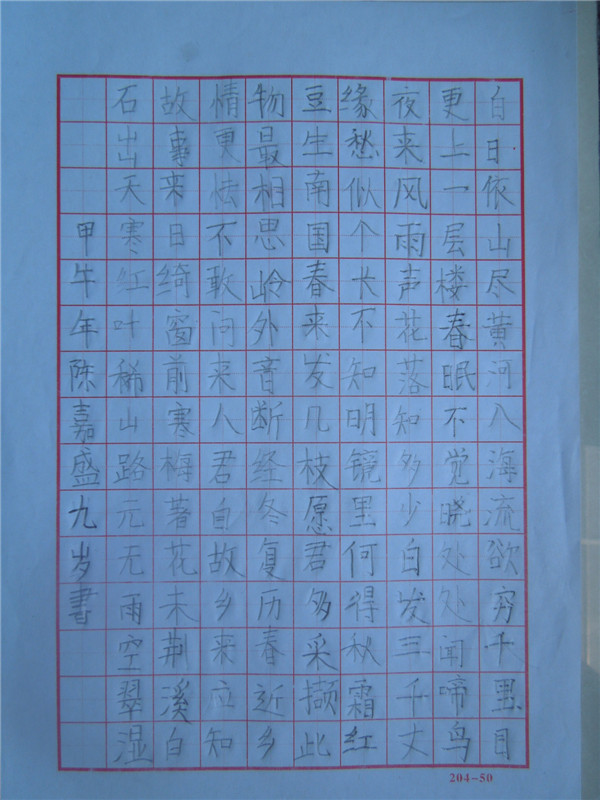 白日依山尽黄河入海流欲穷千里目
更上一层楼春眠不觉晓处处闻啼鸟
夜来风雨声花落知多少白发三千丈
缘愁似个长不知明镜里何得秋霜红
豆生南国春来发几枝愿君多采撷此
物最相思岭外音断经冬复历春近乡
情更怯不敢问来人君自故乡来应知
故事来日绮窗前寒梅著花未荆溪白
石出天寒红叶稀山路元无雨空翠湿
甲午年陈嘉盛九岁书
204-50